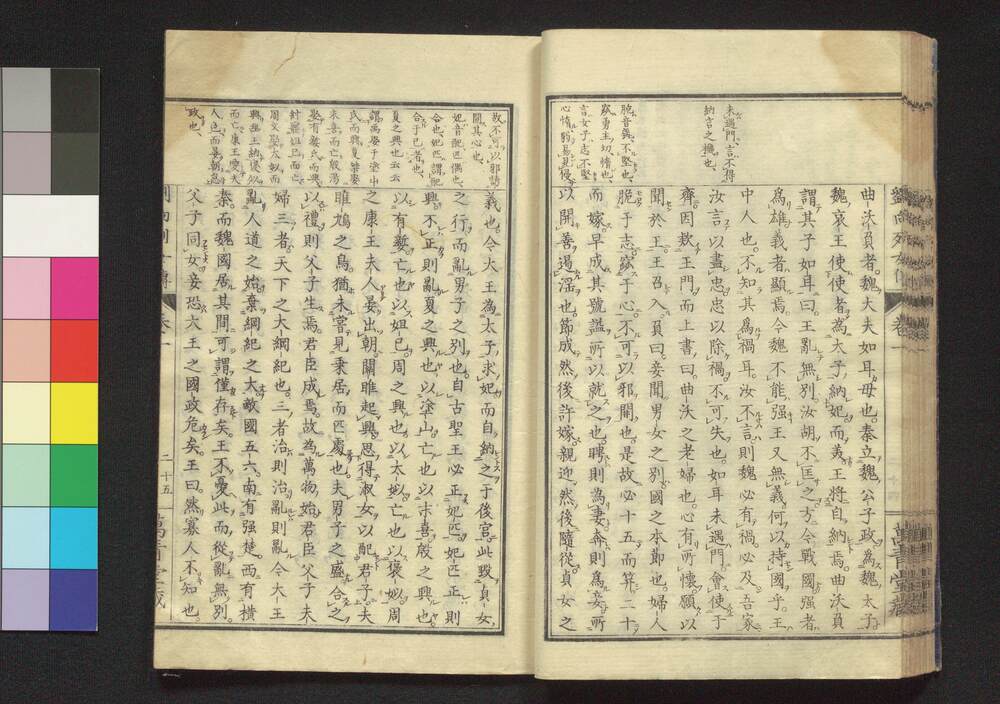 未遇門言不得
納言之機也、
脆音毳、不堅也、
窳勇主切、惰也、
言女子志不堅
心惰弱易見侵
曲沃負者。魏大夫如耳母也。秦立魏公子政爲魏太子。
魏哀王使使者爲太子納妃而美。王將自納焉。曲沃負
謂其子如耳曰。王亂無別。汝胡不匡之。方今戰國。强者
爲雄。義者顯焉。今魏不能强。王又無義。何以持國乎。王
中人也。不知其爲禍耳。汝不言。則魏必有禍。必及吾家。
汝言以盡忠。忠以除禍。不可失也。如耳未遇門。會使于
齊。因款王門而上書曰。曲沃之老婦也。心有所懷。願以
聞於王。王召入。負曰。妾聞男女之別。國之本節也。婦人
脆于志。窳于心。不可以邪開也。是故必十五而笄。二十
而嫁。早成其號謚。所以就之也。聘則爲妻。奔則爲妾。所
以開善遏淫也。節成然後許嫁。親迎然後隨從。貞女之
故不可以邪誘
開其心也、
妃音配匹偶也、
合也、妃匹謂配
合于己者也、
夏之興也云云
謂禹娶于塗山
氏而興、夏桀娶
末喜而亡、殷湯
娶有㜪氏而興、
紂嬖妲己而亡、
周文娶太姒而
興、幽王納褒姒
而亡、康王愛夫
人色而晏朝怠
政也、
義也。今大王爲太子求妃。而自納之于後宮。此毀貞女
之行。而亂男子之別也。自古聖王必正妃匹。妃匹正則
興。不正則亂。夏之興也以塗山。亡也以末喜。殷之興也
以有㜪。亡也以妲己。周之興也以太姒。亡也以褒姒。周
之康王夫人晏出朝。關雎起興。思得淑女以配君子。夫
雎鳩之鳥。猶未嘗見乘居而匹處也。夫男子之盛合之
以禮。則父子生焉。君臣成焉。故爲萬物始。君臣父子夫
婦三者。天下之大綱紀也。三者治則治。亂則亂。今大王
亂人道之始。棄綱紀之大。敵國五六。南有强楚。西有橫
秦。而魏國居其間。可謂僅存矣。王不憂此。而從亂無別。
父子同女。妾恐大王之國政危矣。王曰。然。寡人不知也。
二十五